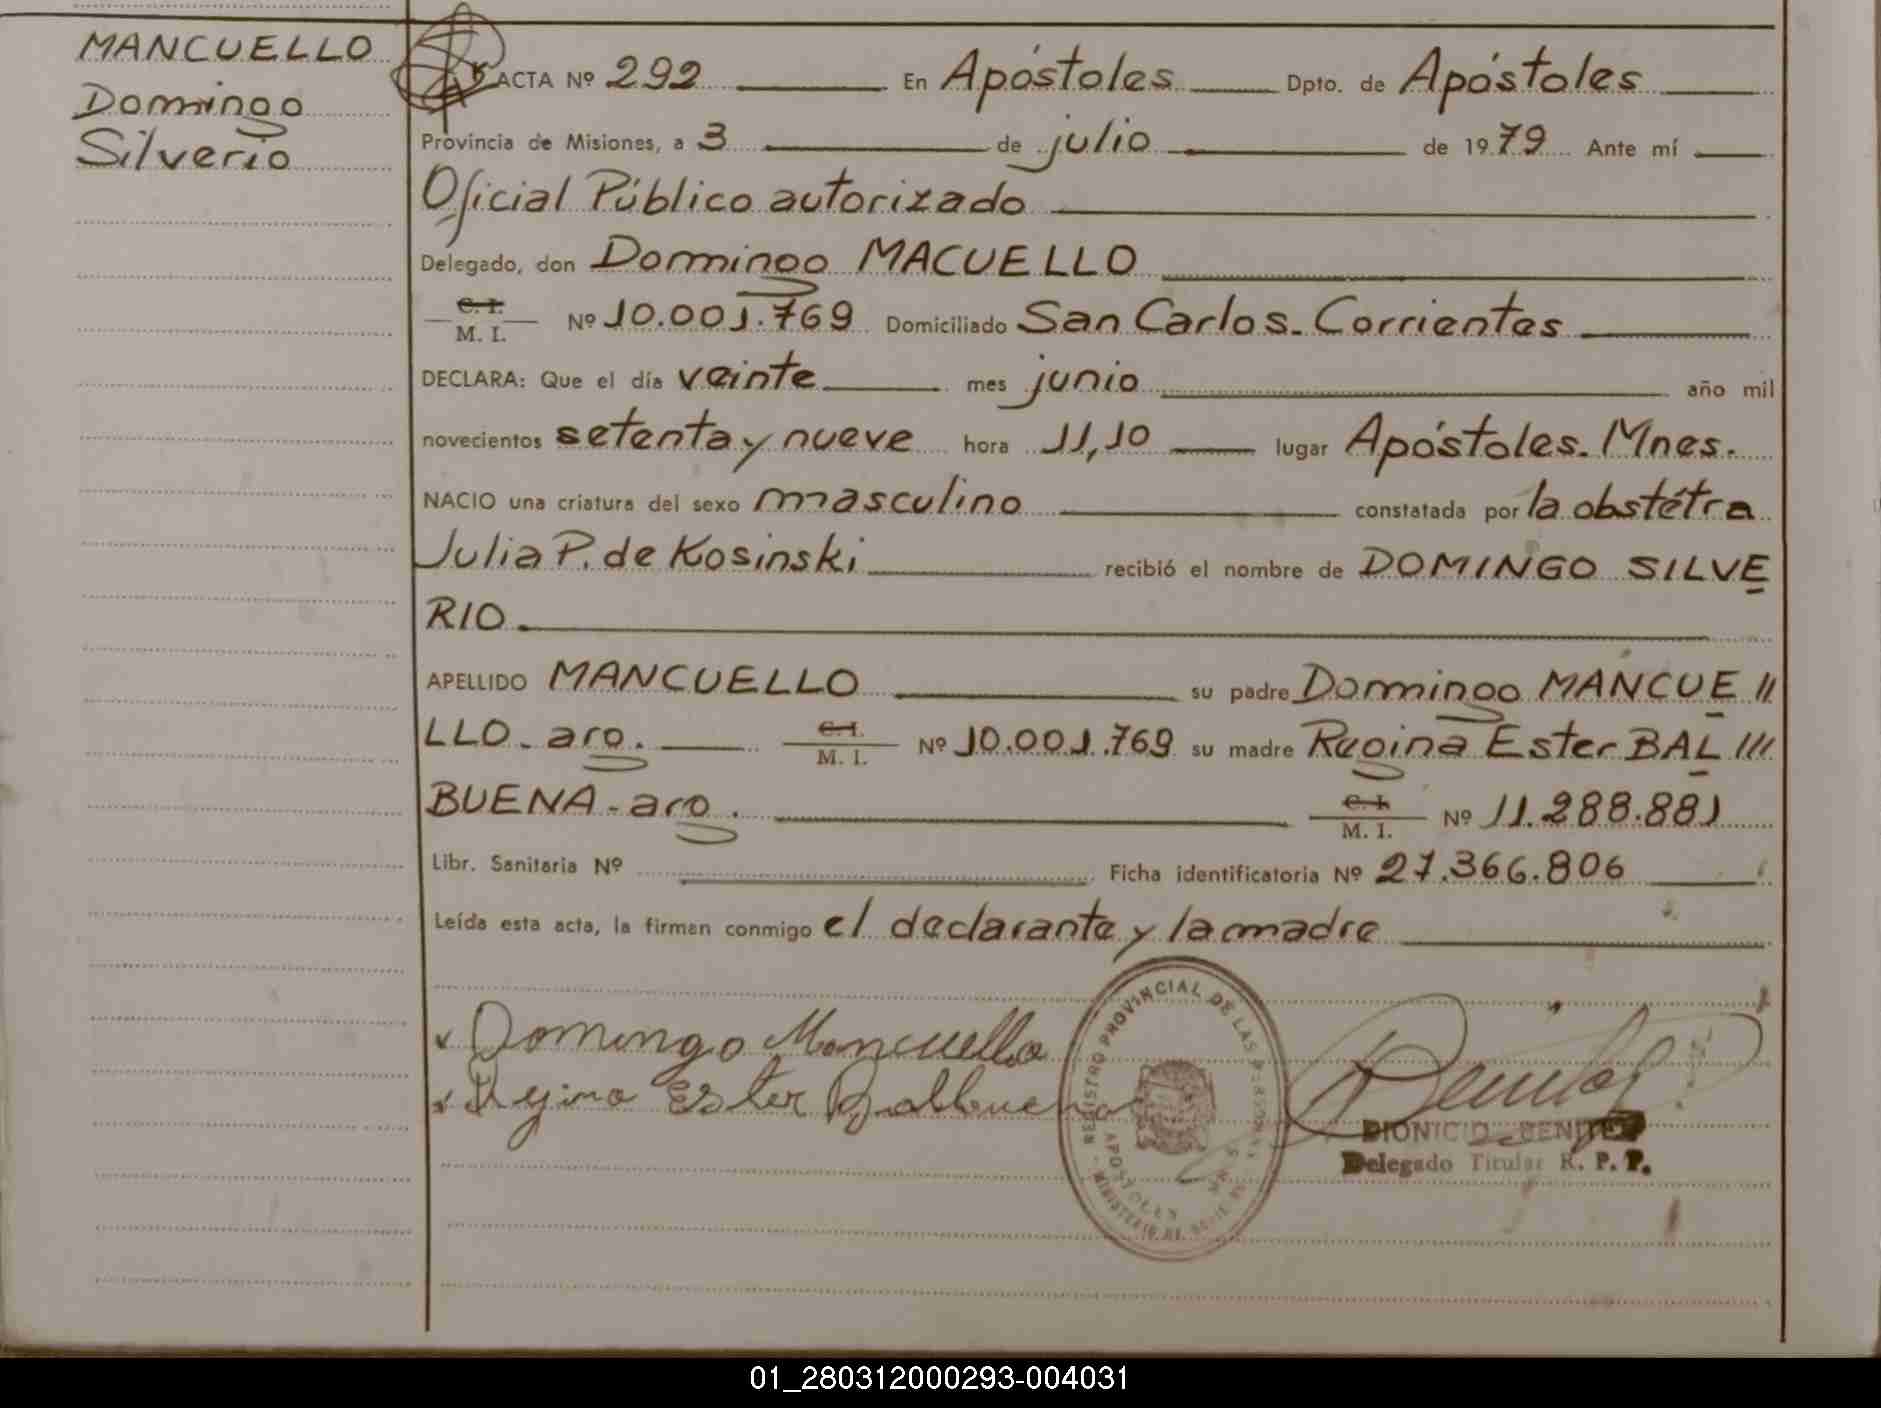 MANCUELLO
Domingo
Silverio
ACTA Nº 292 En Apóstoles Dpto. de Apóstoles
Provincia de Misiones, a 3 de julio de 1979 Ante mí
Oficial Público autorizado
Delegado, don Domingo MACUELLO
C. I.
M. I. Nº 10.001.769 Domiciliado San Carlos. Corrientes
DECLARA: Que el día veinte mes junio año mil
novecientos setenta y nueve hora 11,10 lugar Apóstoles. Mnes.
NACIO una criatura del sexo masculino constatada por la obstétra
Julia P. de Kosinski recibió el nombre de DOMINGO SILVE
RIO
APELLIDO MANCUELLO su padre Domingo MANCUE //
LLO - arg. C. I. M. I. Nº 10.001.769 su madre Regina Ester BAL ///
BUENA - arg. C. I. M. I. Nº 11.288.881
Libr. Sanitaria Nº Ficha identificatoria Nº 27.366.806
Leída esta acta, la firman conmigo el declarante y la madre
x Domingo Mancuello
x Regina Ester Balbuena
REGISTRO PROVINCIAL DE LAS PERSONAS
APOSTOLES
MINISTERIO DE
DIONICIO BENITEZ
Delegado Titular R. P. P.
01_280312000293-004031